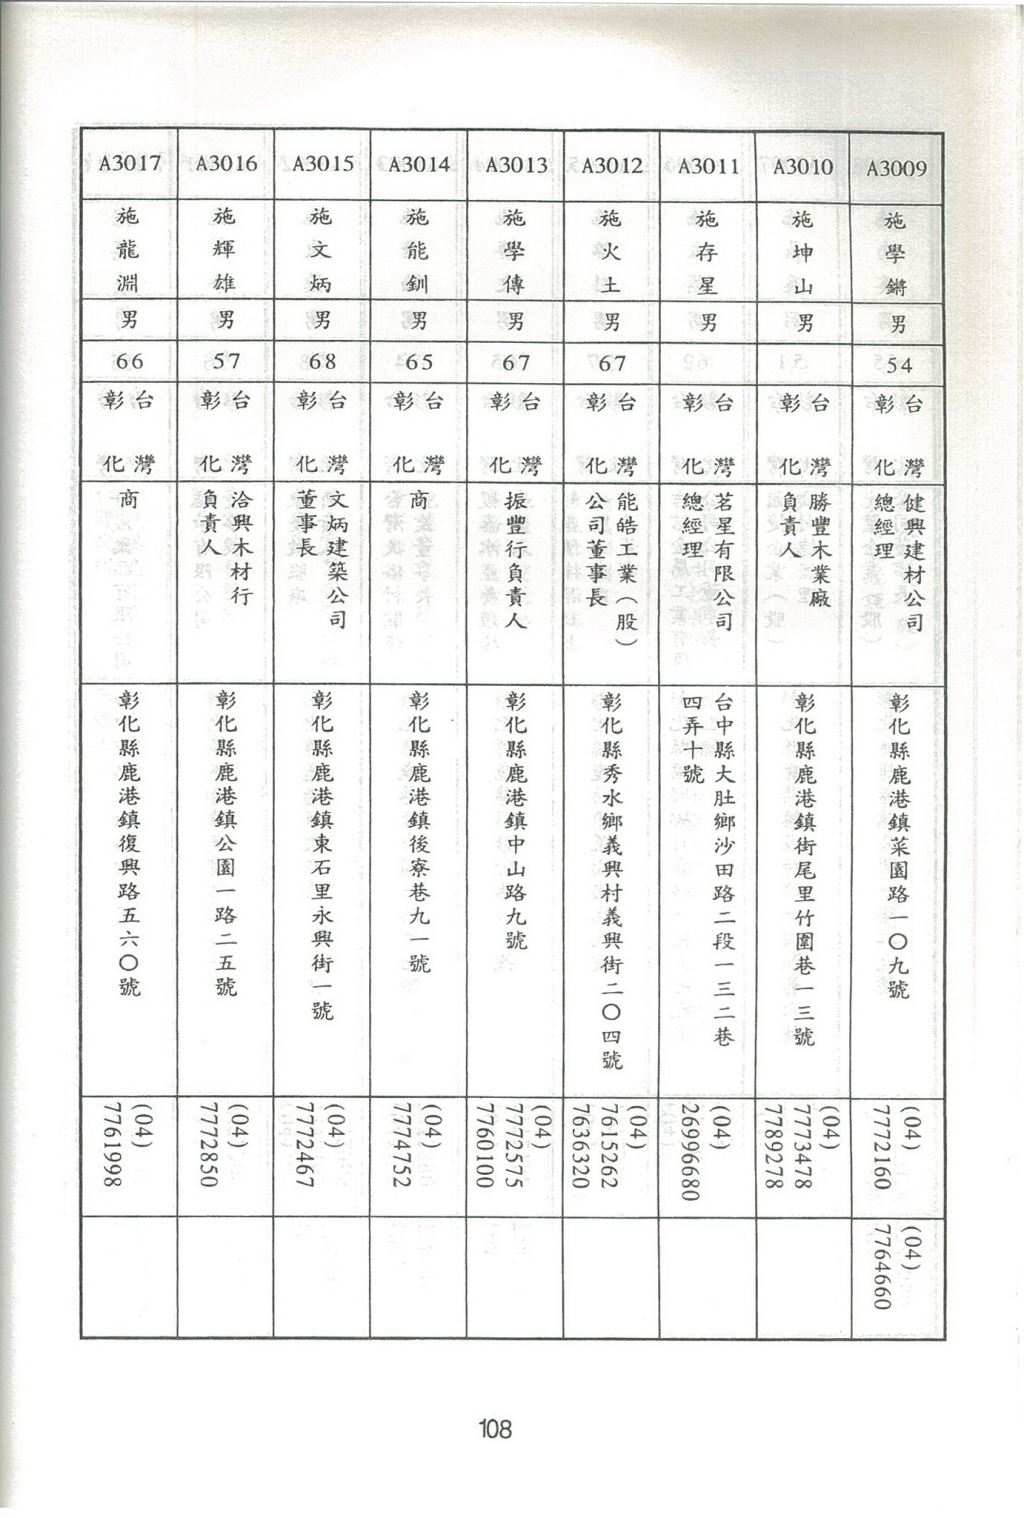 A3009
施學鏘
男
54
台灣
彰化
健興建材公司
總經理
彰化縣鹿港鎮菜園路一〇九號
(04)
7772160
(04)
7764660
A3010
施坤山
男
台灣
彰化
勝豐木業廠
負責人
彰化縣鹿港鎮街尾里竹圍巷一三號
(04)
7773478
7789278
A3011
施存星
男
台灣
彰化
茗星有限公司
總經理
台中縣大肚鄉沙田路二段一三二巷
四弄十號
(04)
26996680
A3012
施火土
男
67
台灣
彰化
能皓工業（股）
公司董事長
彰化縣秀水鄉義興村義興街二〇四號
(04)
7615262
7636320
A3013
施學傳
男
67
台灣
彰化
振豐行負責人
彰化縣鹿港鎮中山路九號
(04)
7772575
7760100
A3014
施能釧
男
65
台灣
彰化
商
彰化縣鹿港鎮後寮巷九一號
(04)
7774752
A3015
施文炳
男
68
台灣
彰化
文炳建築公司
董事長
彰化縣鹿港鎮東石里永興街一號
(04)
7772467
A3016
施輝雄
男
57
台灣
彰化
洽興木材行
負責人
彰化縣鹿港鎮公園一路二五號
(04)
7772850
A3017
施龍淵
男
66
台灣
彰化
商
彰化縣鹿港鎮復興路五六〇號
(04)
7761998
108